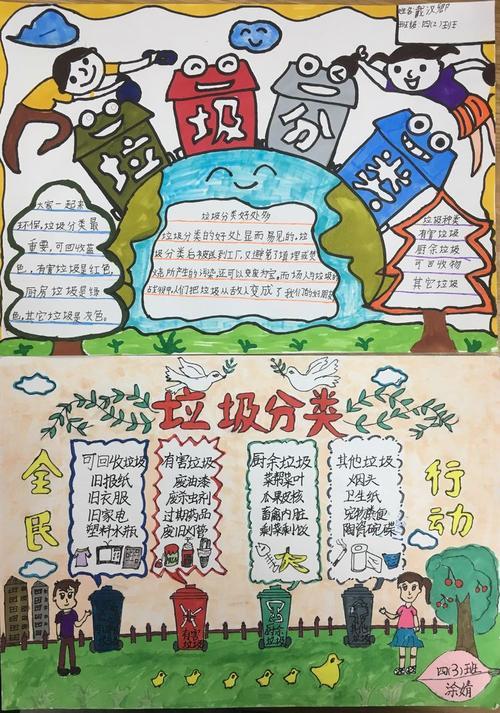 姓名:戴汶卿
班级:四(2)班
垃圾分类
大家一起来
环保,垃圾分类最
重要,可回收蓝
色,有害垃圾是红色,
厨房垃圾是绿
色,其它垃圾是灰色。
垃圾分类好处多
垃圾分类的好处显而易见的。垃
圾分类后被送到工厂,又避免了填埋或焚
烧所产生的污染,还可以变废为宝,而场人与垃圾的
战役中,人们把垃圾从敌人变成了我们的好朋友
垃圾种类
有害垃圾
厨余垃圾
可回收物
其它垃圾
垃圾分类
全民
行动
可回收垃圾
旧报纸
旧衣服
旧家电
塑料水瓶
有害垃圾
废油漆
废杀虫剂
过期药品
废旧灯管
厨余垃圾
菜帮菜叶
瓜果皮核
畜禽内脏
剩菜剩饭
其他垃圾
烟头
卫生纸
宠物粪便
陶瓷碗碟
有害
垃圾
厨余
垃圾
四(3)班
涂婧